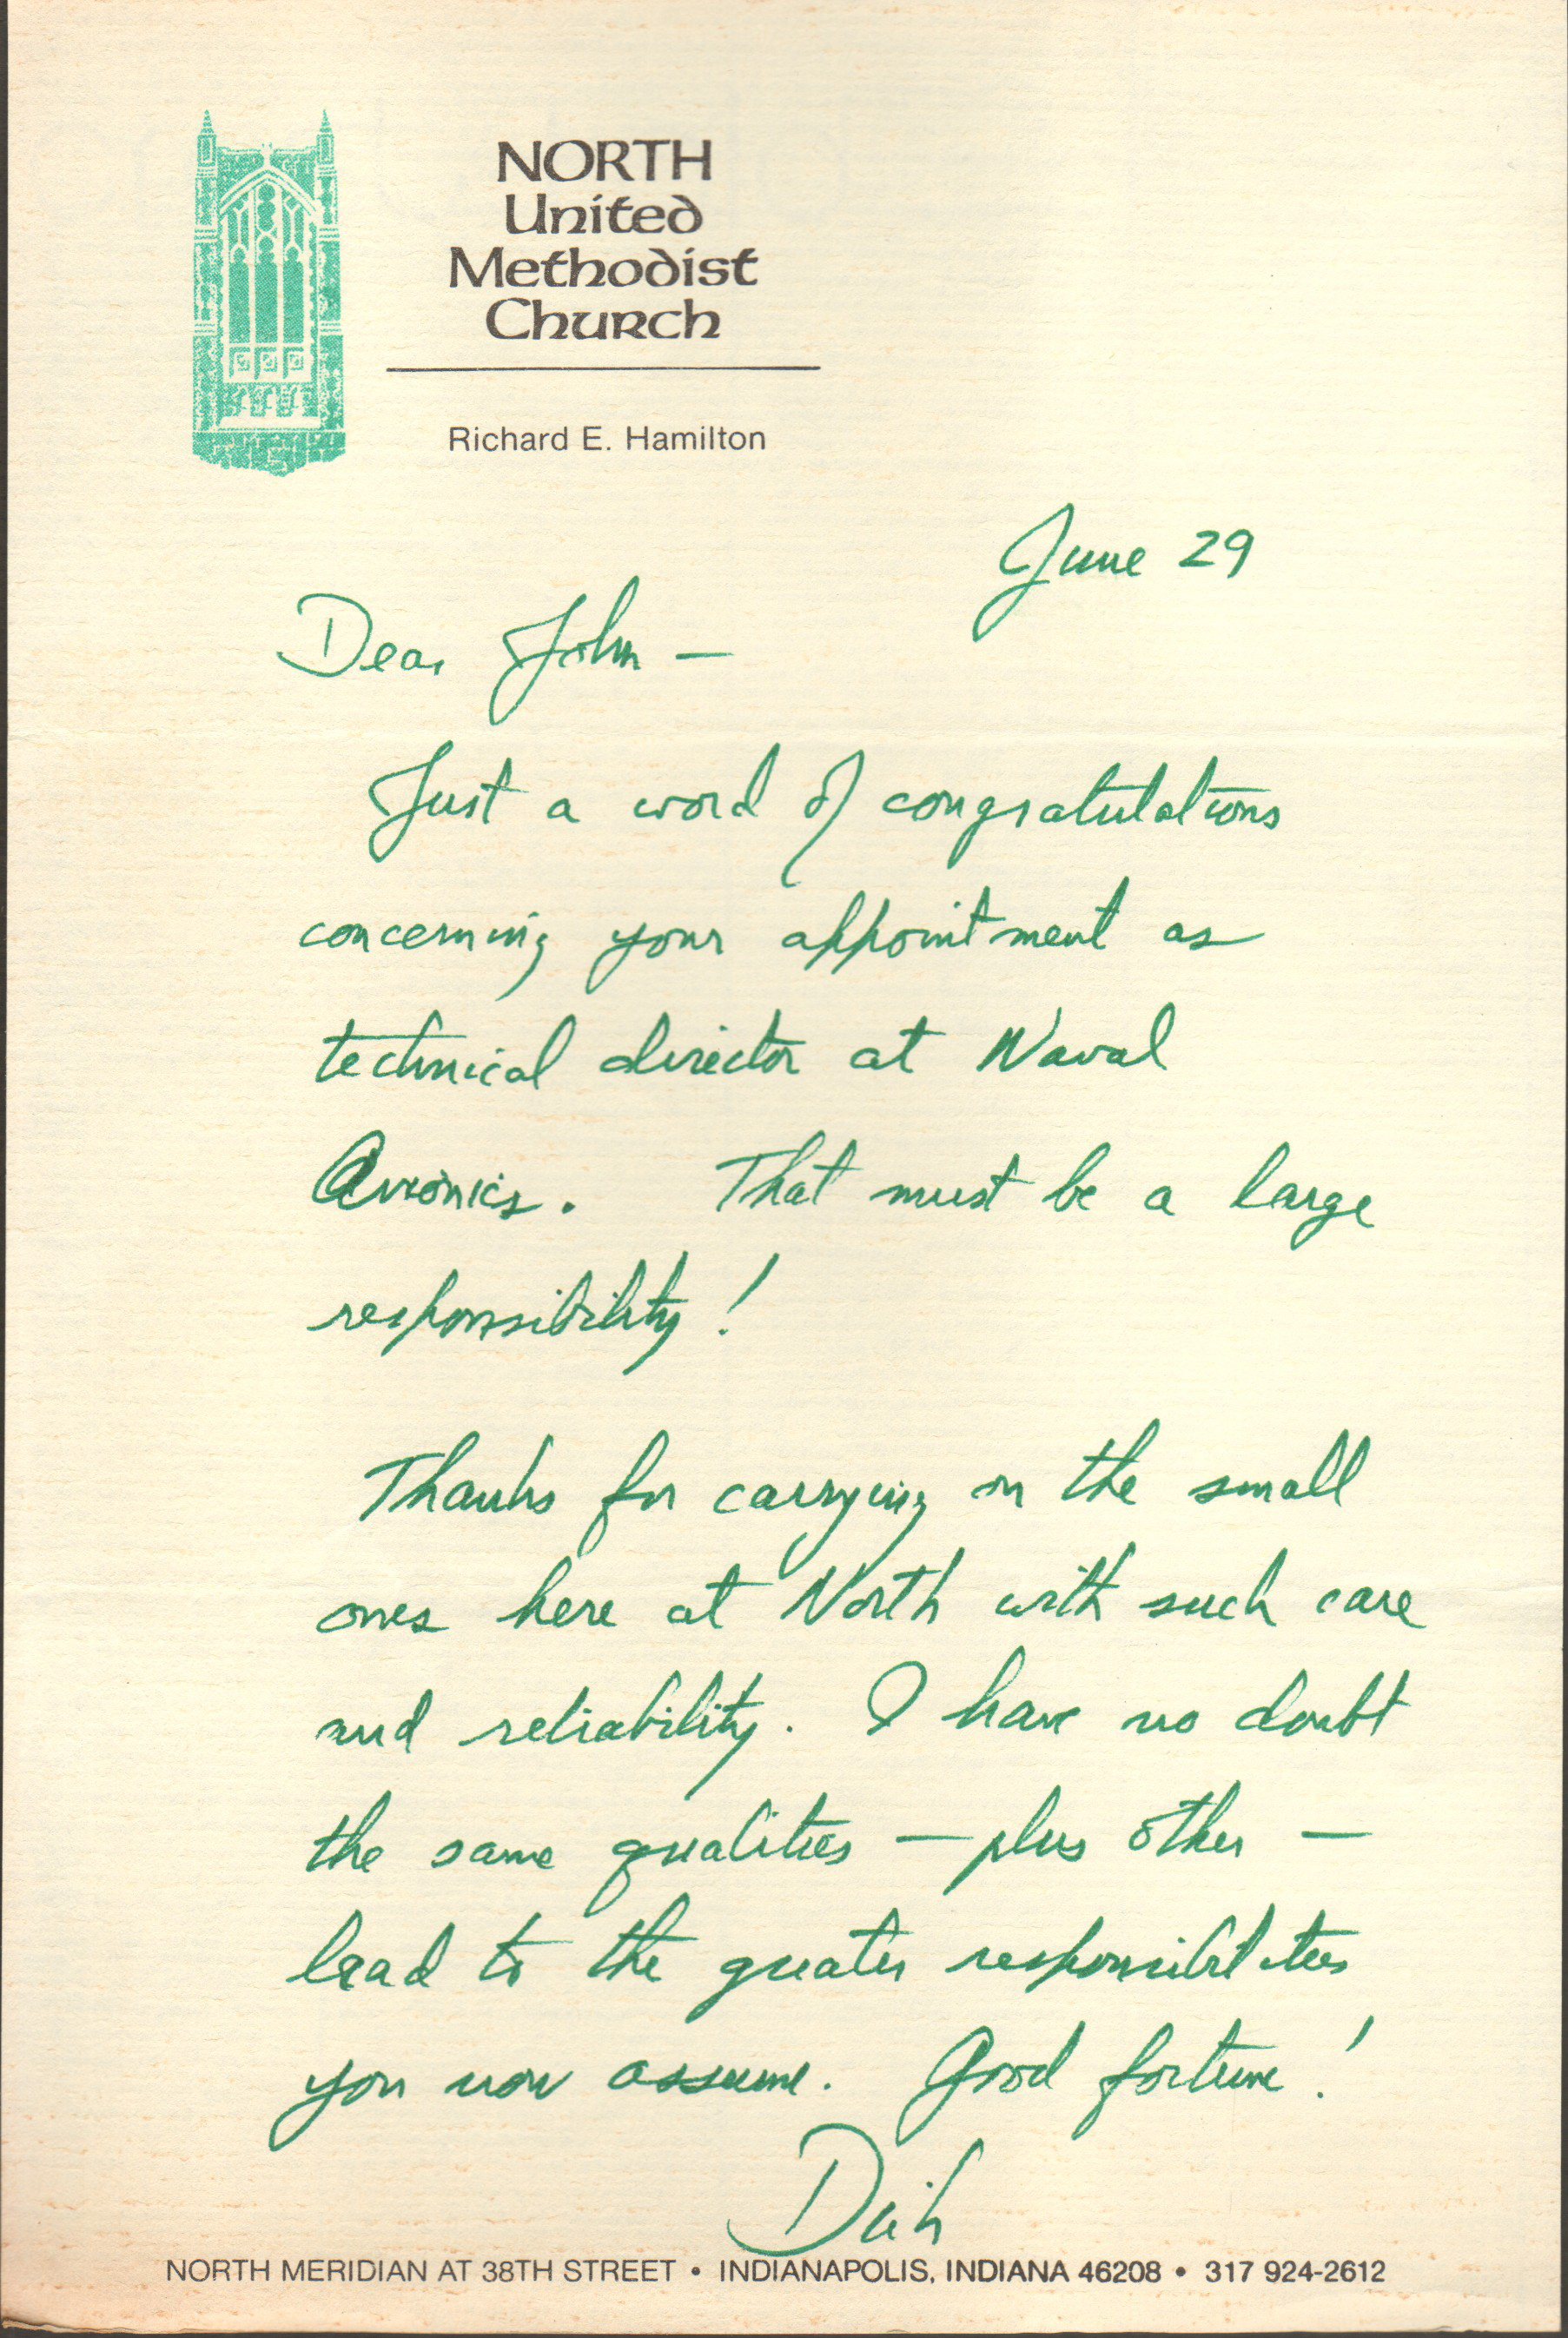 NORTH
United
Methodist
Church
Richard E. Hamilton
June 29
Dear John —
Just a word of congratulations
concerning your appointment as
technical director at Naval
Avionics. That must be a large
responsibility!
Thanks for carrying on the small
ones here at North with such care
and reliability. I have no doubt
the same qualities — plus other —
lead to the greater responsibilities
you now assume. Good fortune!
Dick
NORTH MERIDIAN AT 38TH STREET • INDIANAPOLIS, INDIANA 46208 • 317 924-2612